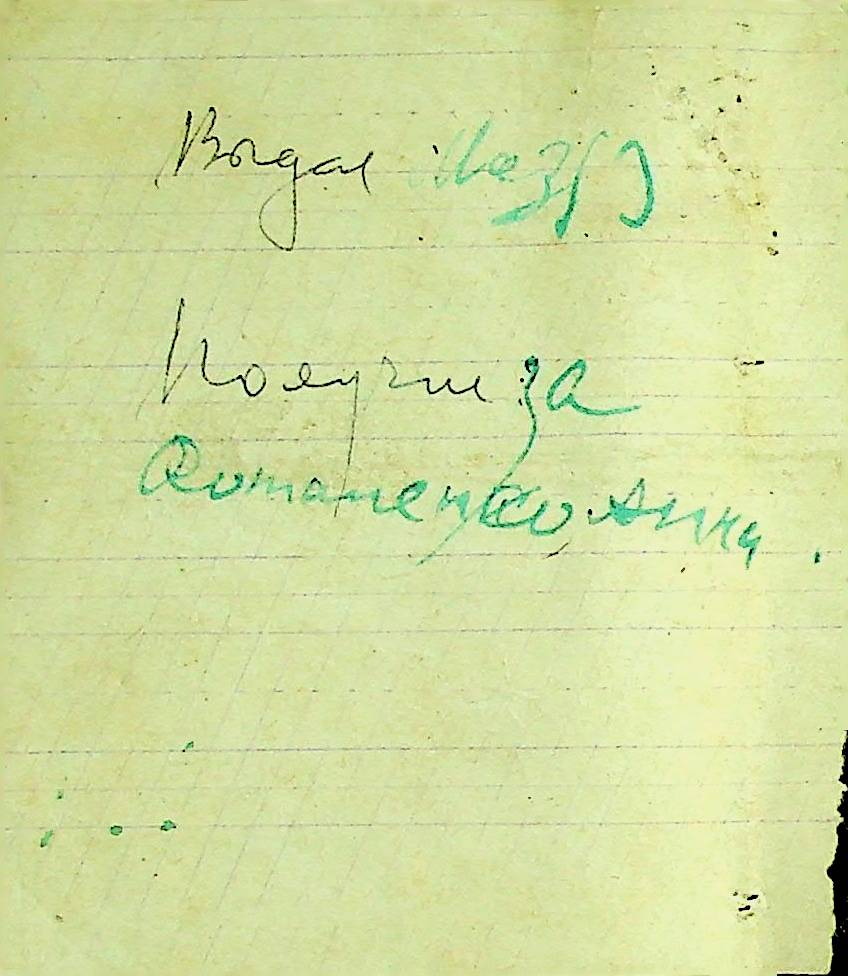 Выдал
Получил за
Романенко Анну